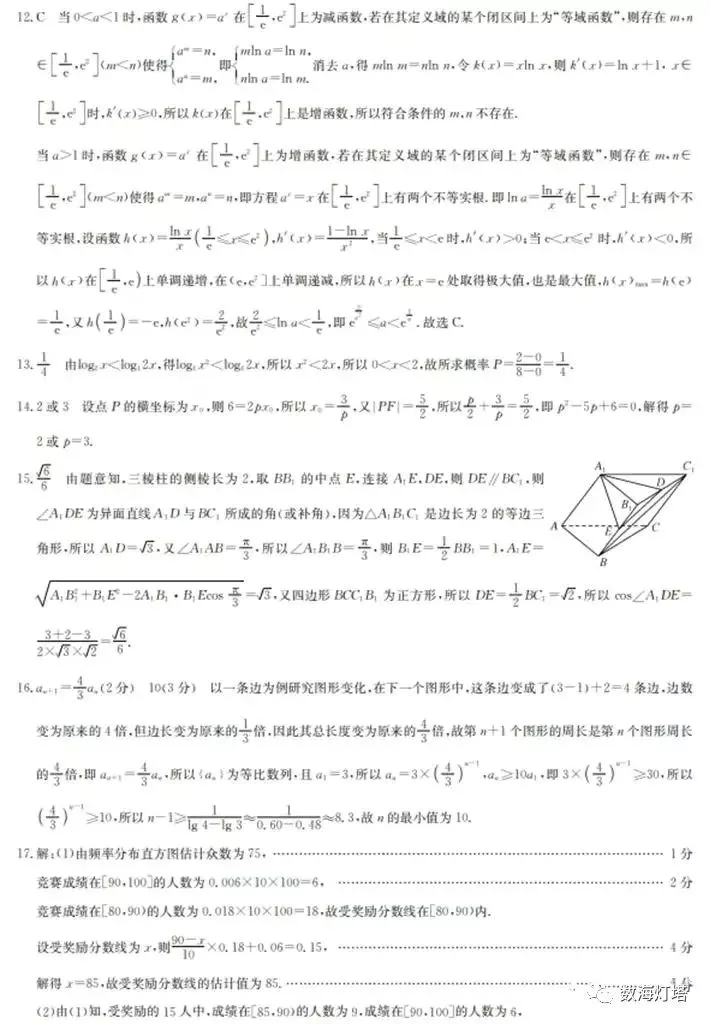 12. C 当0<a<1时,函数g(x)=aˣ在[1/e,e²]上为减函数,若在其定义域的某个闭区间上为“等域函数”,则存在m,n
∈[1/e,e²](m<n)使得{aᵐ=n, aⁿ=m, 即{mln a=ln n, nln a=ln m. 消去a,得mln m=nln n,令k(x)=xln x,则k′(x)=ln x+1, x∈
[1/e,e²]时,k′(x)≥0,所以k(x)在[1/e,e²]上是增函数,所以符合条件的m,n不存在.
当a>1时,函数g(x)=aˣ在[1/e,e²]上为增函数,若在其定义域的某个闭区间上为“等域函数”,则存在m,n∈
[1/e,e²](m<n)使得aᵐ=m,aⁿ=n,即方程aˣ=x在[1/e,e²]上有两个不等实根.即ln a=ln x/x在[1/e,e²]上有两个不
等实根,设函数h(x)=ln x/x(1/e≤x≤e²),h′(x)=(1-ln x)/x²,当1/e≤x<e时,h′(x)>0;当e<x≤e²时,h′(x)<0,所
以h(x)在[1/e,e)上单调递增,在(e,e²]上单调递减,所以h(x)在x=e处取得极大值,也是最大值,h(x)max=h(e)
=1/e,又h(1/e)=-e,h(e²)=2/e²,故2/e²≤ln a<1/e,即e^(2/e²)≤a<e^(1/e).故选C.
13. 1/4 由log₂x<log₄2x,得log₄x²<log₄2x,所以x²<2x,所以0<x<2,故所求概率P=(2-0)/(8-0)=1/4.
14. 2或3 设点P的横坐标为x₀,则6=2px₀,所以x₀=3/p,又|PF|=5/2,所以p/2+3/p=5/2,即p²-5p+6=0,解得p=
2或p=3.
15. √6/6 由题意知,三棱柱的侧棱长为2,取BB₁的中点E,连接A₁E,DE,则DE∥BC₁,则
∠A₁DE为异面直线A₁D与BC₁所成的角(或补角),因为△A₁B₁C₁是边长为2的等边三
角形,所以A₁D=√3,又∠A₁AB=π/3,所以∠A₁B₁B=π/3,则B₁E=1/2BB₁=1,A₁E=
√(A₁B₁²+B₁E²-2A₁B₁·B₁Ecos π/3)=√3,又四边形BCC₁B₁为正方形,所以DE=1/2BC₁=√2,所以cos∠A₁DE=
(3+2-3)/(2×√3×√2)=√6/6.
A₁
C₁
D
B₁
A
E
C
B
16. aₙ₊₁=4/3aₙ(2分) 10(3分) 以一条边为例研究图形变化,在下一个图形中,这条边变成了(3-1)+2=4条边,边数
变为原来的4倍,但边长变为原来的1/3倍,因此其总长度变为原来的4/3倍,故第n+1个图形的周长是第n个图形周长
的4/3倍,即aₙ₊₁=4/3aₙ,所以{aₙ}为等比数列,且a₁=3,所以aₙ=3×(4/3)ⁿ⁻¹,aₙ≥10a₁,即3×(4/3)ⁿ⁻¹≥30,所以
(4/3)ⁿ⁻¹≥10,所以n-1≥1/(lg 4-lg 3)≈1/(0.60-0.48)≈8.3,故n的最小值为10.
17. 解:(1)由频率分布直方图估计众数为75, …… 1分
竞赛成绩在[90,100]的人数为0.006×10×100=6, …… 2分
竞赛成绩在[80,90)的人数为0.018×10×100=18,故受奖励分数线在[80,90)内.
设受奖励分数线为x,则(90-x)/10×0.18+0.06=0.15, …… 4分
解得x=85,故受奖励分数线的估计值为85. …… 分
数海灯塔
(2)由(1)知,受奖励的15人中,成绩在[85,90)的人数为9,成绩在[90,100]的人数为6,